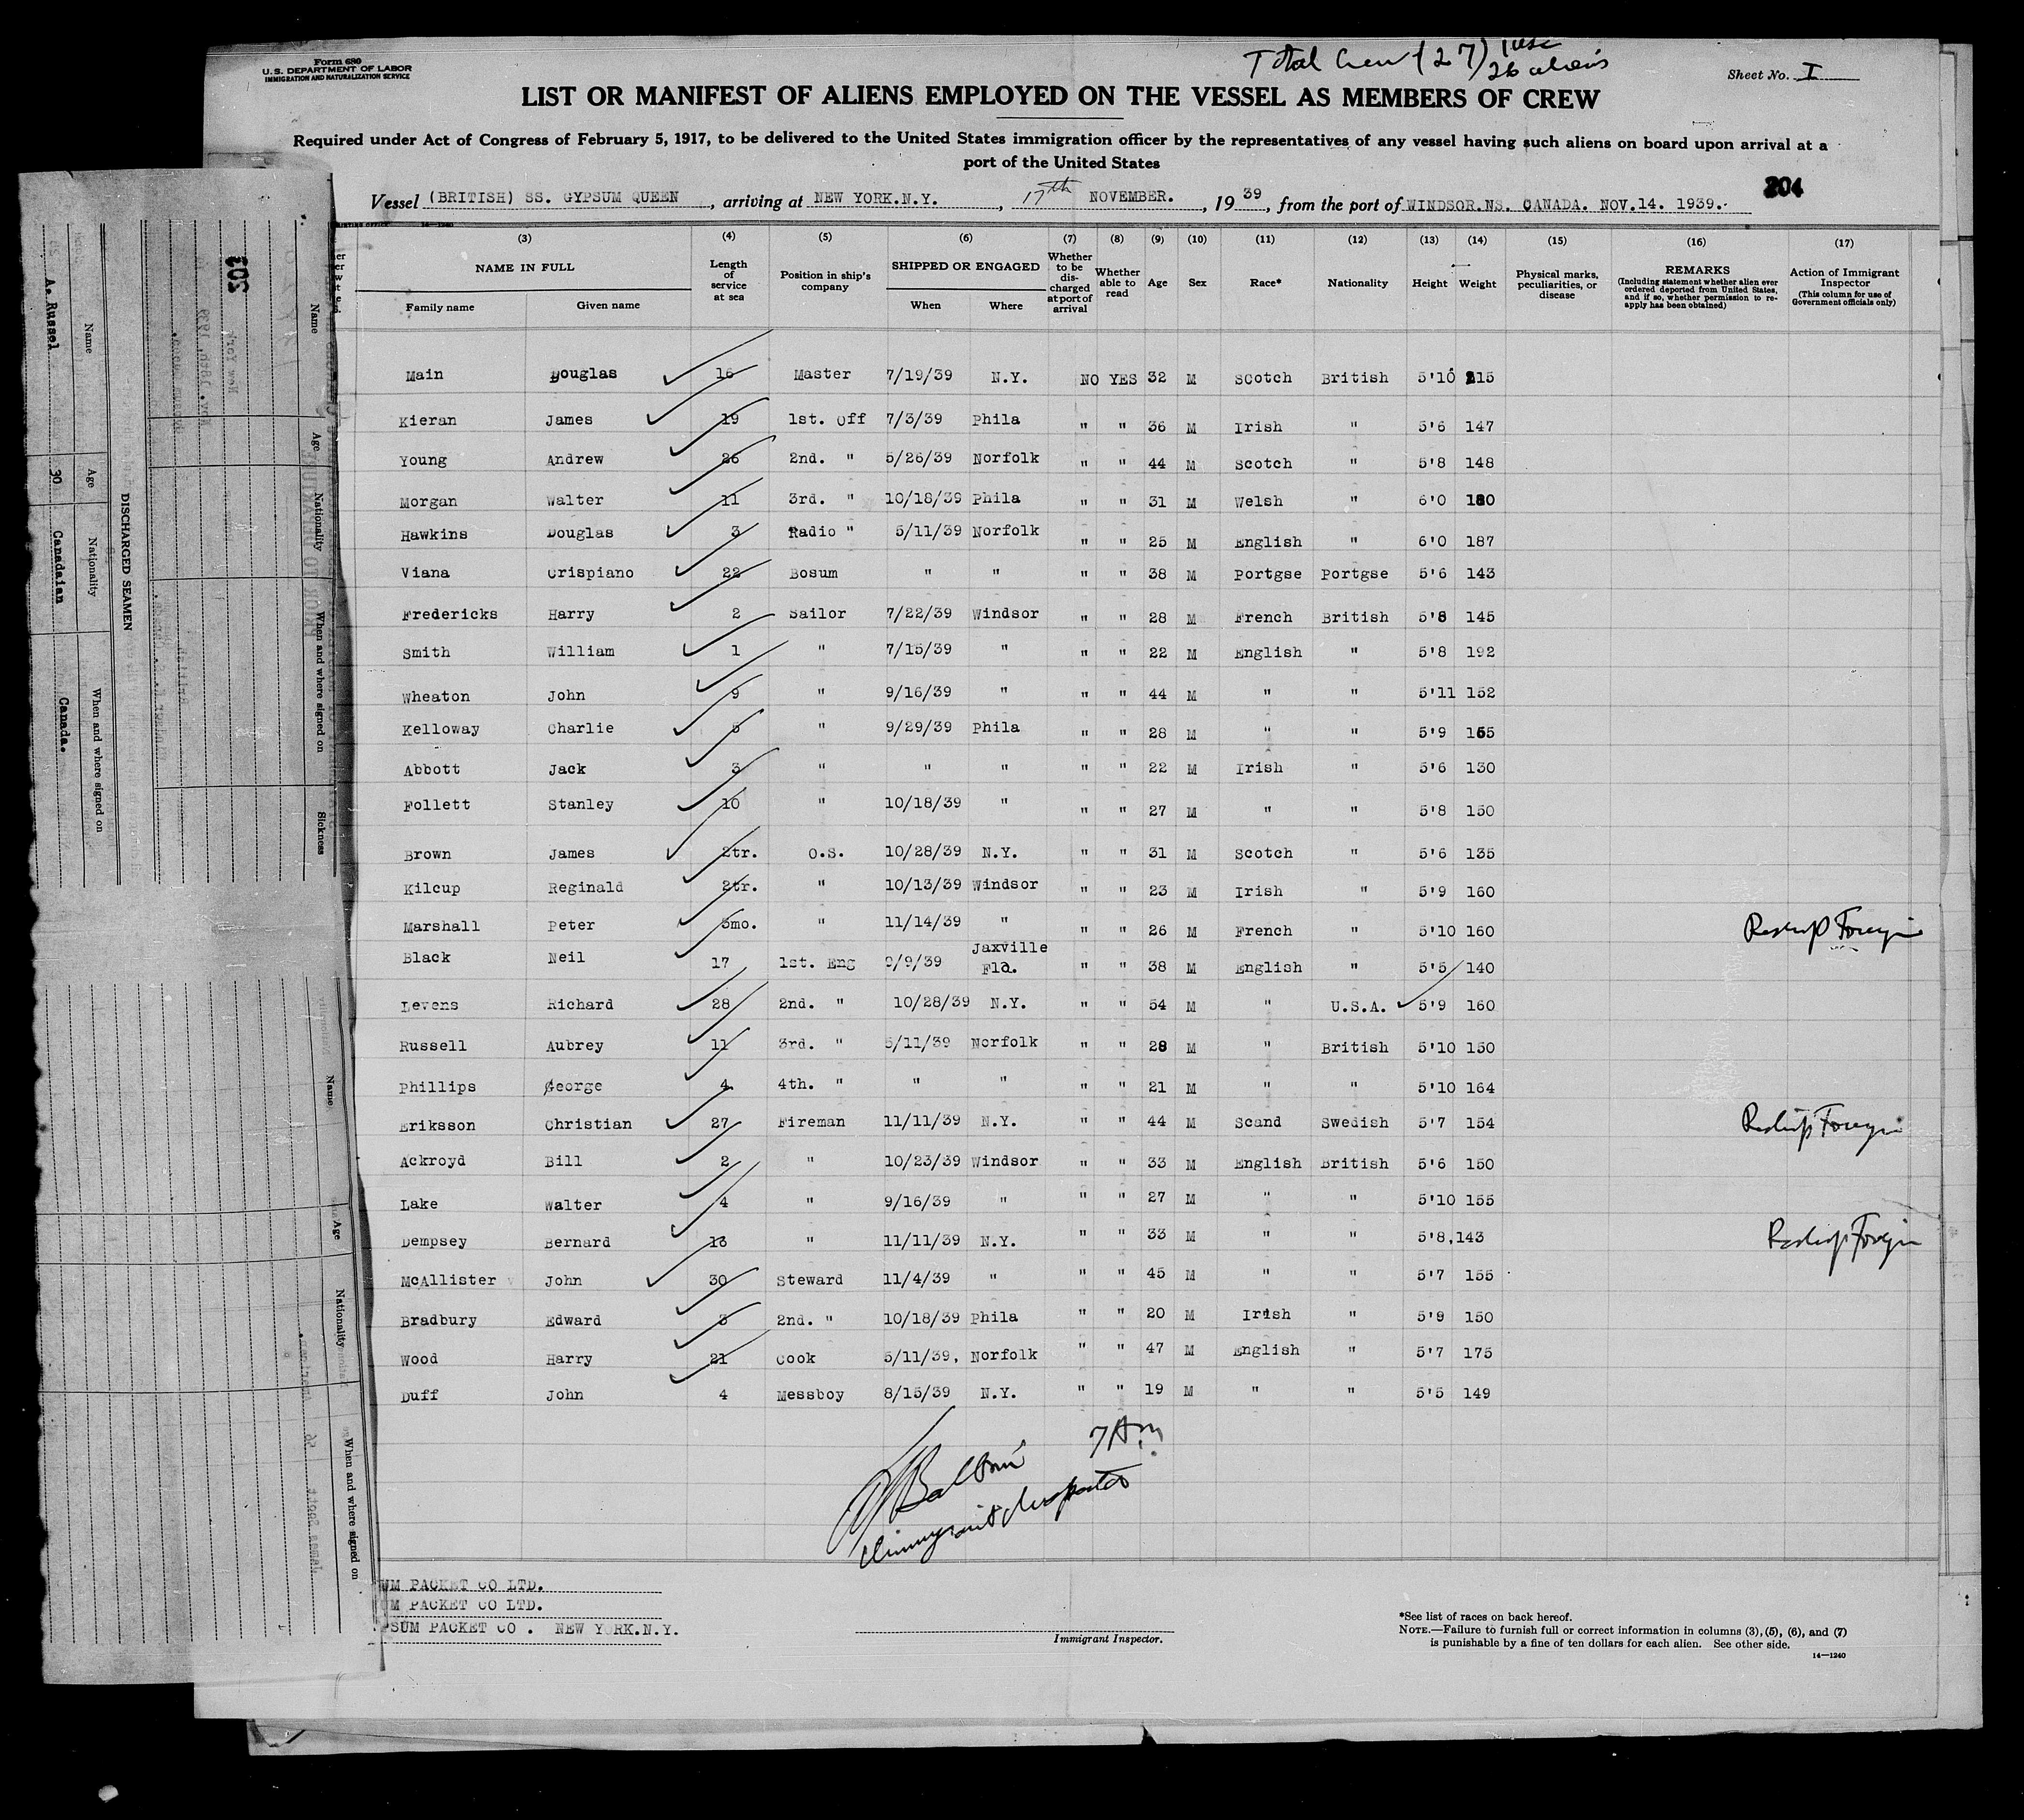 Form 680
U.S. DEPARTMENT OF LABOR
IMMIGRATION AND NATURALIZATION SERVICE
Total Crew (27) 1 USC
26 aliens
Sheet No. I
LIST OR MANIFEST OF ALIENS EMPLOYED ON THE VESSEL AS MEMBERS OF CREW
Required under Act of Congress of February 5, 1917, to be delivered to the United States immigration officer by the representatives of any vessel having such aliens on board upon arrival at a
port of the United States
204
Vessel (BRITISH) SS. GYPSUM QUEEN, arriving at NEW YORK.N.Y., 17th NOVEMBER., 1939, from the port of WINDSOR.NS. CANADA. NOV.14. 1939.
(3) (4) (5) (6) (7) (8) (9) (10) (11) (12) (13) (14) (15) (16) (17)
NAME IN FULL
Family name Given name
Length of service at sea
Position in ship's company
SHIPPED OR ENGAGED
When Where
Whether to be discharged at port of arrival
Whether able to read
Age
Sex
Race*
Nationality
Height
Weight
Physical marks, peculiarities, or disease
REMARKS
(Including statement whether alien ever ordered deported from United States, and if so, whether permission to reapply has been obtained)
Action of Immigrant Inspector
(This column for use of Government officials only)
Main Douglas 16 Master 7/19/39 N.Y. NO YES 32 M Scotch British 5'10 215
Kieran James 19 1st. Off 7/3/39 Phila " " 36 M Irish " 5'6 147
Young Andrew 26 2nd. " 5/26/39 Norfolk " " 44 M Scotch " 5'8 148
Morgan Walter 11 3rd. " 10/18/39 Phila " " 31 M Welsh " 6'0 180
Hawkins Douglas 3 Radio " 5/11/39 Norfolk " " 25 M English " 6'0 187
Viana Crispiano 22 Bosum " " " " 38 M Portgse Portgse 5'6 143
Fredericks Harry 2 Sailor 7/22/39 Windsor " " 28 M French British 5'8 145
Smith William 1 " 7/15/39 " " " 22 M English " 5'8 192
Wheaton John 9 " 9/16/39 " " " 44 M " " 5'11 152
Kelloway Charlie 5 " 9/29/39 Phila " " 28 M " " 5'9 155
Abbott Jack 3 " " " " " 22 M Irish " 5'6 130
Follett Stanley 10 " 10/18/39 " " " 27 M " " 5'8 150
Brown James 2tr. O.S. 10/28/39 N.Y. " " 31 M Scotch " 5'6 135
Kilcup Reginald 2tr. " 10/13/39 Windsor " " 23 M Irish " 5'9 160
Marshall Peter 5mo. " 11/14/39 " " " 26 M French " 5'10 160 Reship Foreign
Black Neil 17 1st. Eng 9/9/39 Jaxville Fla. " " 38 M English " 5'5 140
Levens Richard 28 2nd. " 10/28/39 N.Y. " " 54 M " U.S.A. 5'9 160
Russell Aubrey 11 3rd. " 5/11/39 Norfolk " " 28 M " British 5'10 150
Phillips George 4 4th. " " " " " 21 M " " 5'10 164
Eriksson Christian 27 Fireman 11/11/39 N.Y. " " 44 M Scand Swedish 5'7 154 Reship Foreign
Ackroyd Bill 2 " 10/23/39 Windsor " " 33 M English British 5'6 150
Lake Walter 4 " 9/16/39 " " " 27 M " " 5'10 155
Dempsey Bernard 13 " 11/11/39 N.Y. " " 33 M " " 5'8,143 Reship Foreign
McAllister John 30 Steward 11/4/39 " " " 45 M " " 5'7 155
Bradbury Edward 3 2nd. " 10/18/39 Phila " " 20 M Irish " 5'9 150
Wood Harry 21 Cook 5/11/39, Norfolk " " 47 M English " 5'7 175
Duff John 4 Messboy 8/15/39 N.Y. " " 19 M " " 5'5 149
7 AM
Immigrant Inspector
UM PACKET CO LTD.
UM PACKET CO LTD.
PSUM PACKET CO . NEW YORK.N.Y.
Immigrant Inspector.
*See list of races on back hereof.
NOTE.—Failure to furnish full or correct information in columns (3), (5), (6), and (7)
is punishable by a fine of ten dollars for each alien. See other side.
14—1240
DISCHARGED SEAMEN
Name Age Nationality When and where signed on
A. Russel 30 Canadaian Canada.
Name Age Nationality When and where signed on Sickness
Name Age Nationality When and where signed on